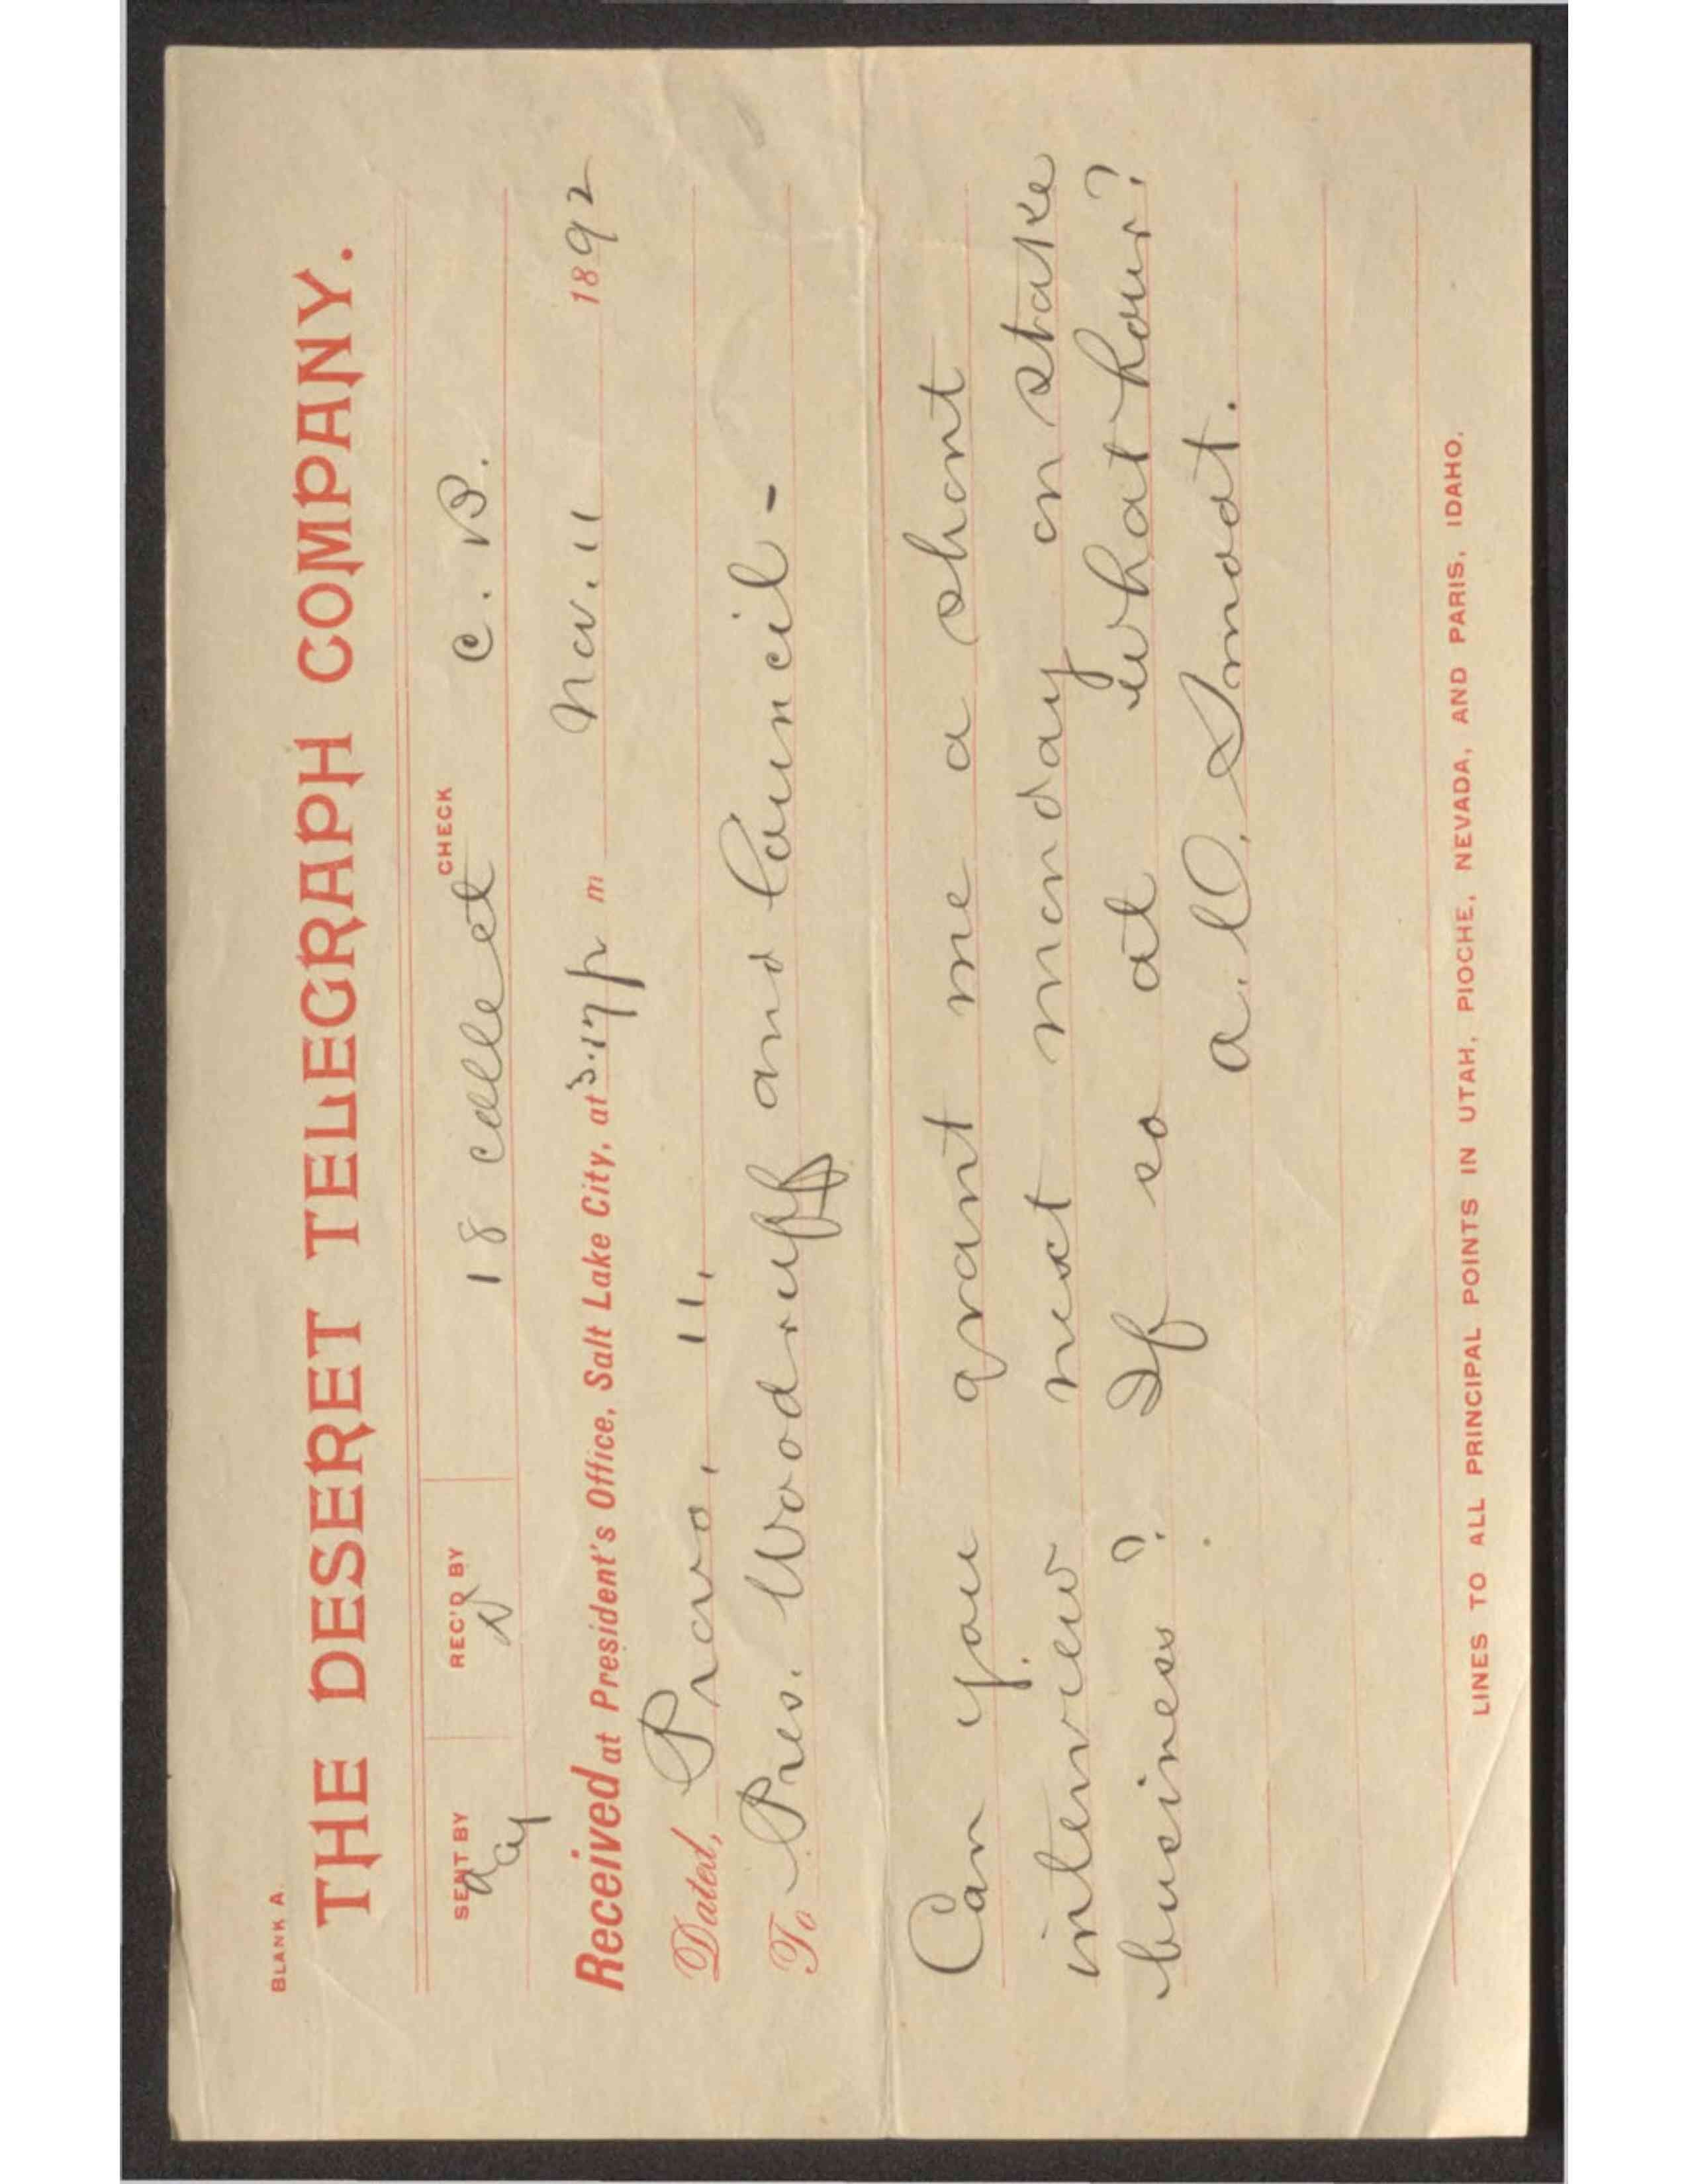 BLANK A.
THE DESERET TELEGRAPH COMPANY.
SENT BY REC'D BY CHECK
ay 18 collect C. B.
Received at President's Office, Salt Lake City, at 3.17 p m Nov. 11 1892
Dated, Provo, 11,
To Pres. Woodruff and Council -
Can you grant me a short
interview next monday on stake
business? If so at what hour?
A. O. Smoot.
LINES TO ALL PRINCIPAL POINTS IN UTAH, PIOCHE, NEVADA, AND PARIS, IDAHO.